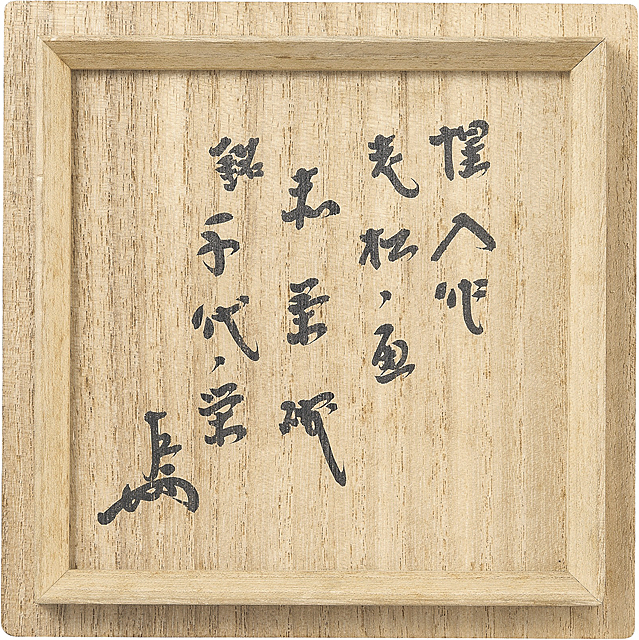 惺入作
老松ノ画
赤茶碗
銘千代ノ栄